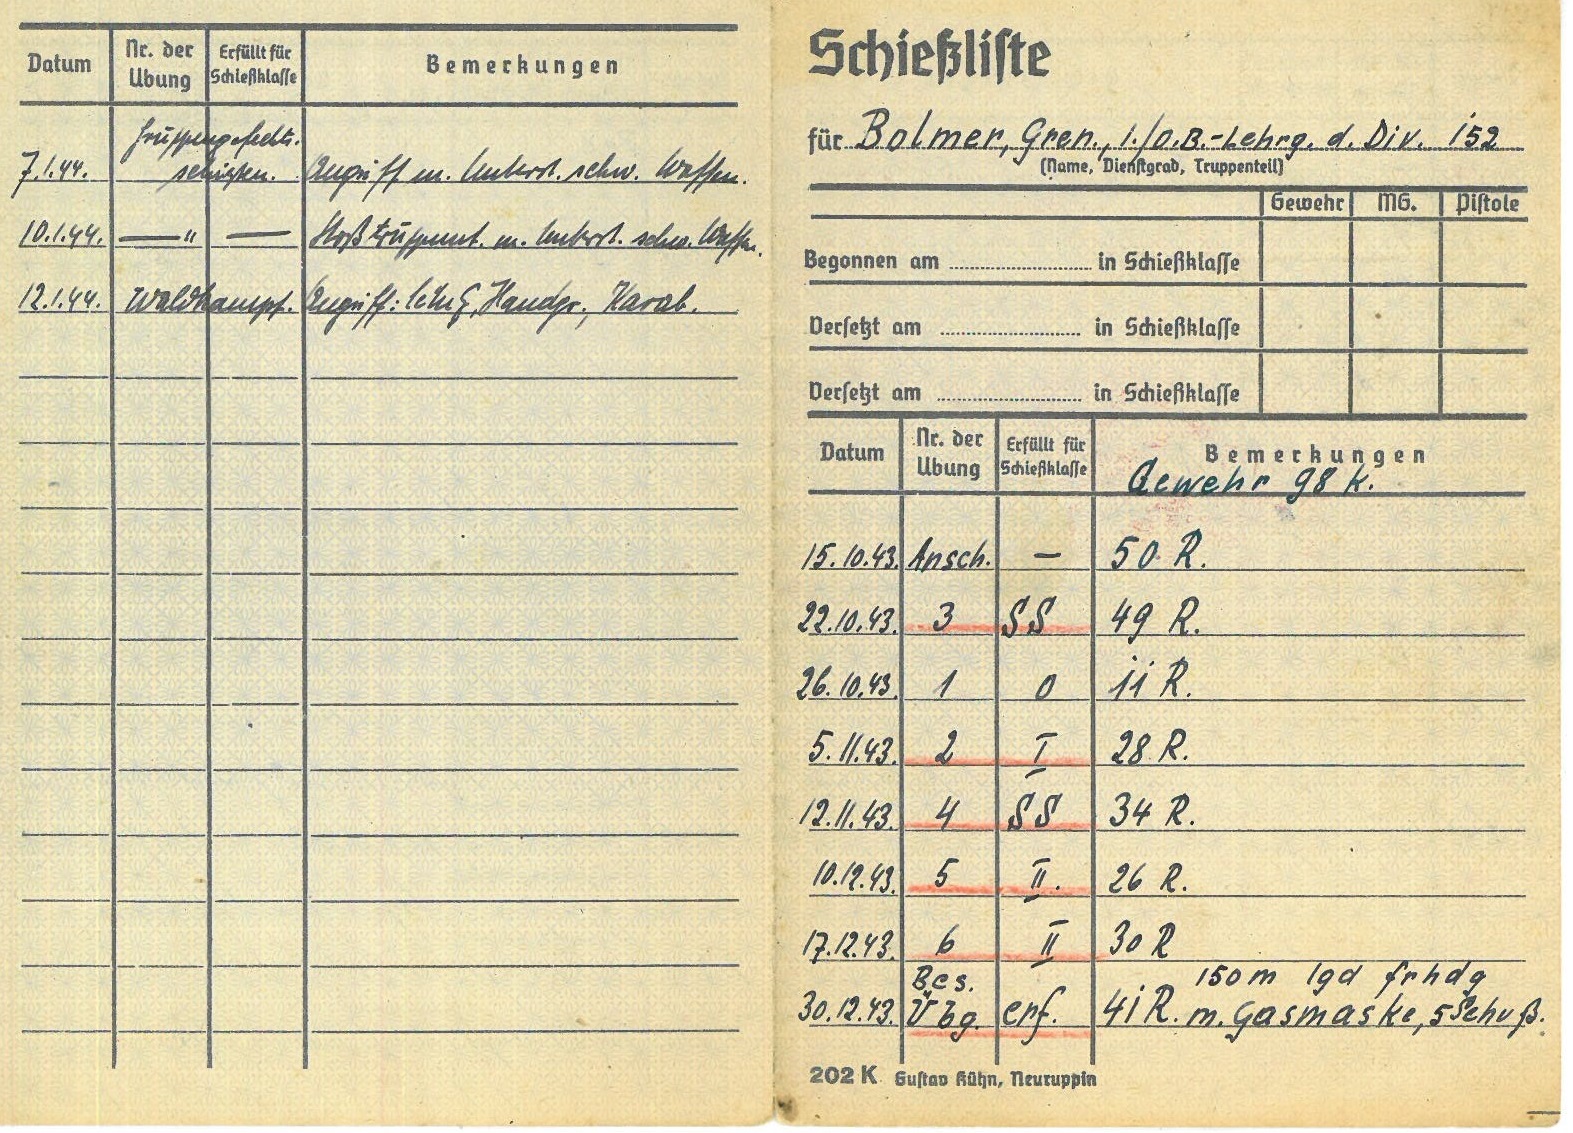 Datum Nr. der Übung Erfüllt für Schießklasse Bemerkungen
7.1.44. Gruppengefechts-
schießen. Angriff m. Unterst. schw. Waffen.
10.1.44. — " — Stoßtruppunt. m. Unterst. schw. Waffen.
12.1.44. Waldkampf. Angriff: Handgr., Karab.
Schießliste
für Bolmer, Gren., 1./O.B.-Lehrg. d. Div. 152
(Name, Dienstgrad, Truppenteil)
Gewehr MG. Pistole
Begonnen am in Schießklasse
Versetzt am in Schießklasse
Versetzt am in Schießklasse
Datum Nr. der Übung Erfüllt für Schießklasse Bemerkungen
Gewehr 98 k.
15.10.43. Ansch. — 50 R.
22.10.43. 3 SS 49 R.
26.10.43. 1 0 11 R.
5.11.43. 2 I 28 R.
12.11.43. 4 SS 34 R.
10.12.43. 5 II. 26 R.
17.12.43. 6 II 30 R
Bes. 150 m lgd frhdg
30.12.43. Übg. erf. 41 R. m. Gasmaske, 5 Schuß.
202 K Gustav Kühn, Neuruppin